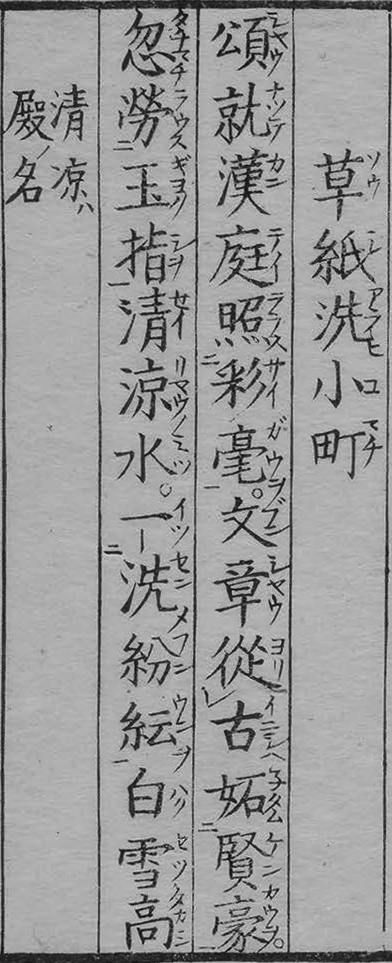 草紙洗小町
頌就漢庭照彩毫。文章從古妬賢豪。
忽勞玉指清涼水。一洗紛紜白雪高
清凉ハ
殿ノ名